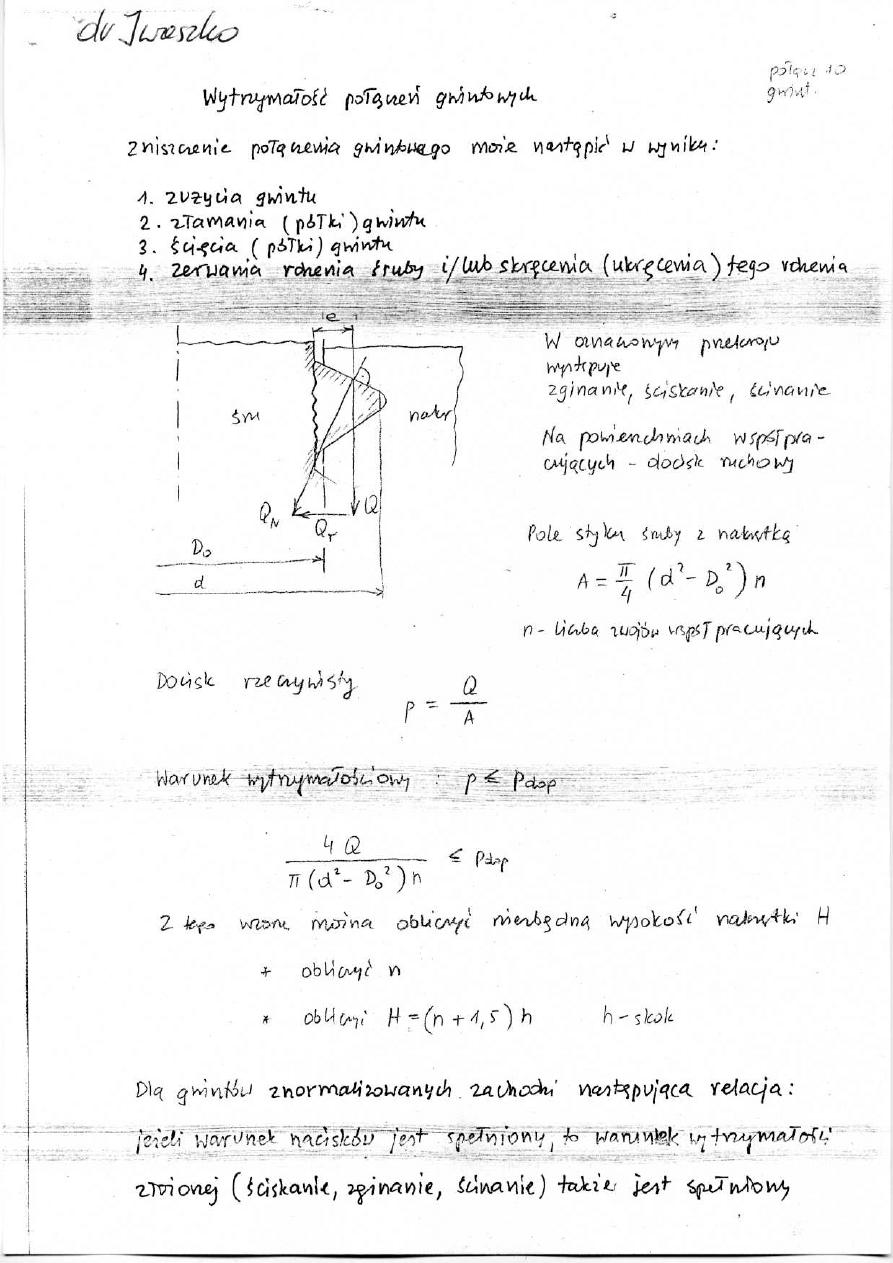 dr Iwaszko
połącz 10
gwint.
Wytrzymałość połączeń gwintowych
Zniszczenie połączenia gwintowego może nastąpić w wyniku:
1. zużycia gwintu
2. złamania (półki) gwintu
3. ścięcia (półki) gwintu
4. zerwania rdzenia śruby i/lub skręcenia (ukręcenia) tego rdzenia
e
W oznaczonym przekroju
występuje
zginanie, ściskanie, ścinanie
śru
nakr
Na powierzchniach współpra-
cujących - docisk ruchowy
Q_N
Q_r
Q
D_o
d
Pole styku śruby z nakrętką
A = π/4 (d² - D_o²) n
n - liczba zwojów współpracujących
Docisk rzeczywisty
p = Q/A
Warunek wytrzymałościowy : p ≤ p_dop
4Q / π(d² - D_o²) n ≤ p_dop
Z tego wzoru można obliczyć niezbędną wysokość nakrętki H
+ obliczyć n
* obliczyć H = (n + 1,5) h h - skok
Dla gwintów znormalizowanych zachodzi następująca relacja:
jeżeli warunek nacisków jest spełniony, to warunek wytrzymałości
złożonej (ściskanie, zginanie, ścinanie) także jest spełniony